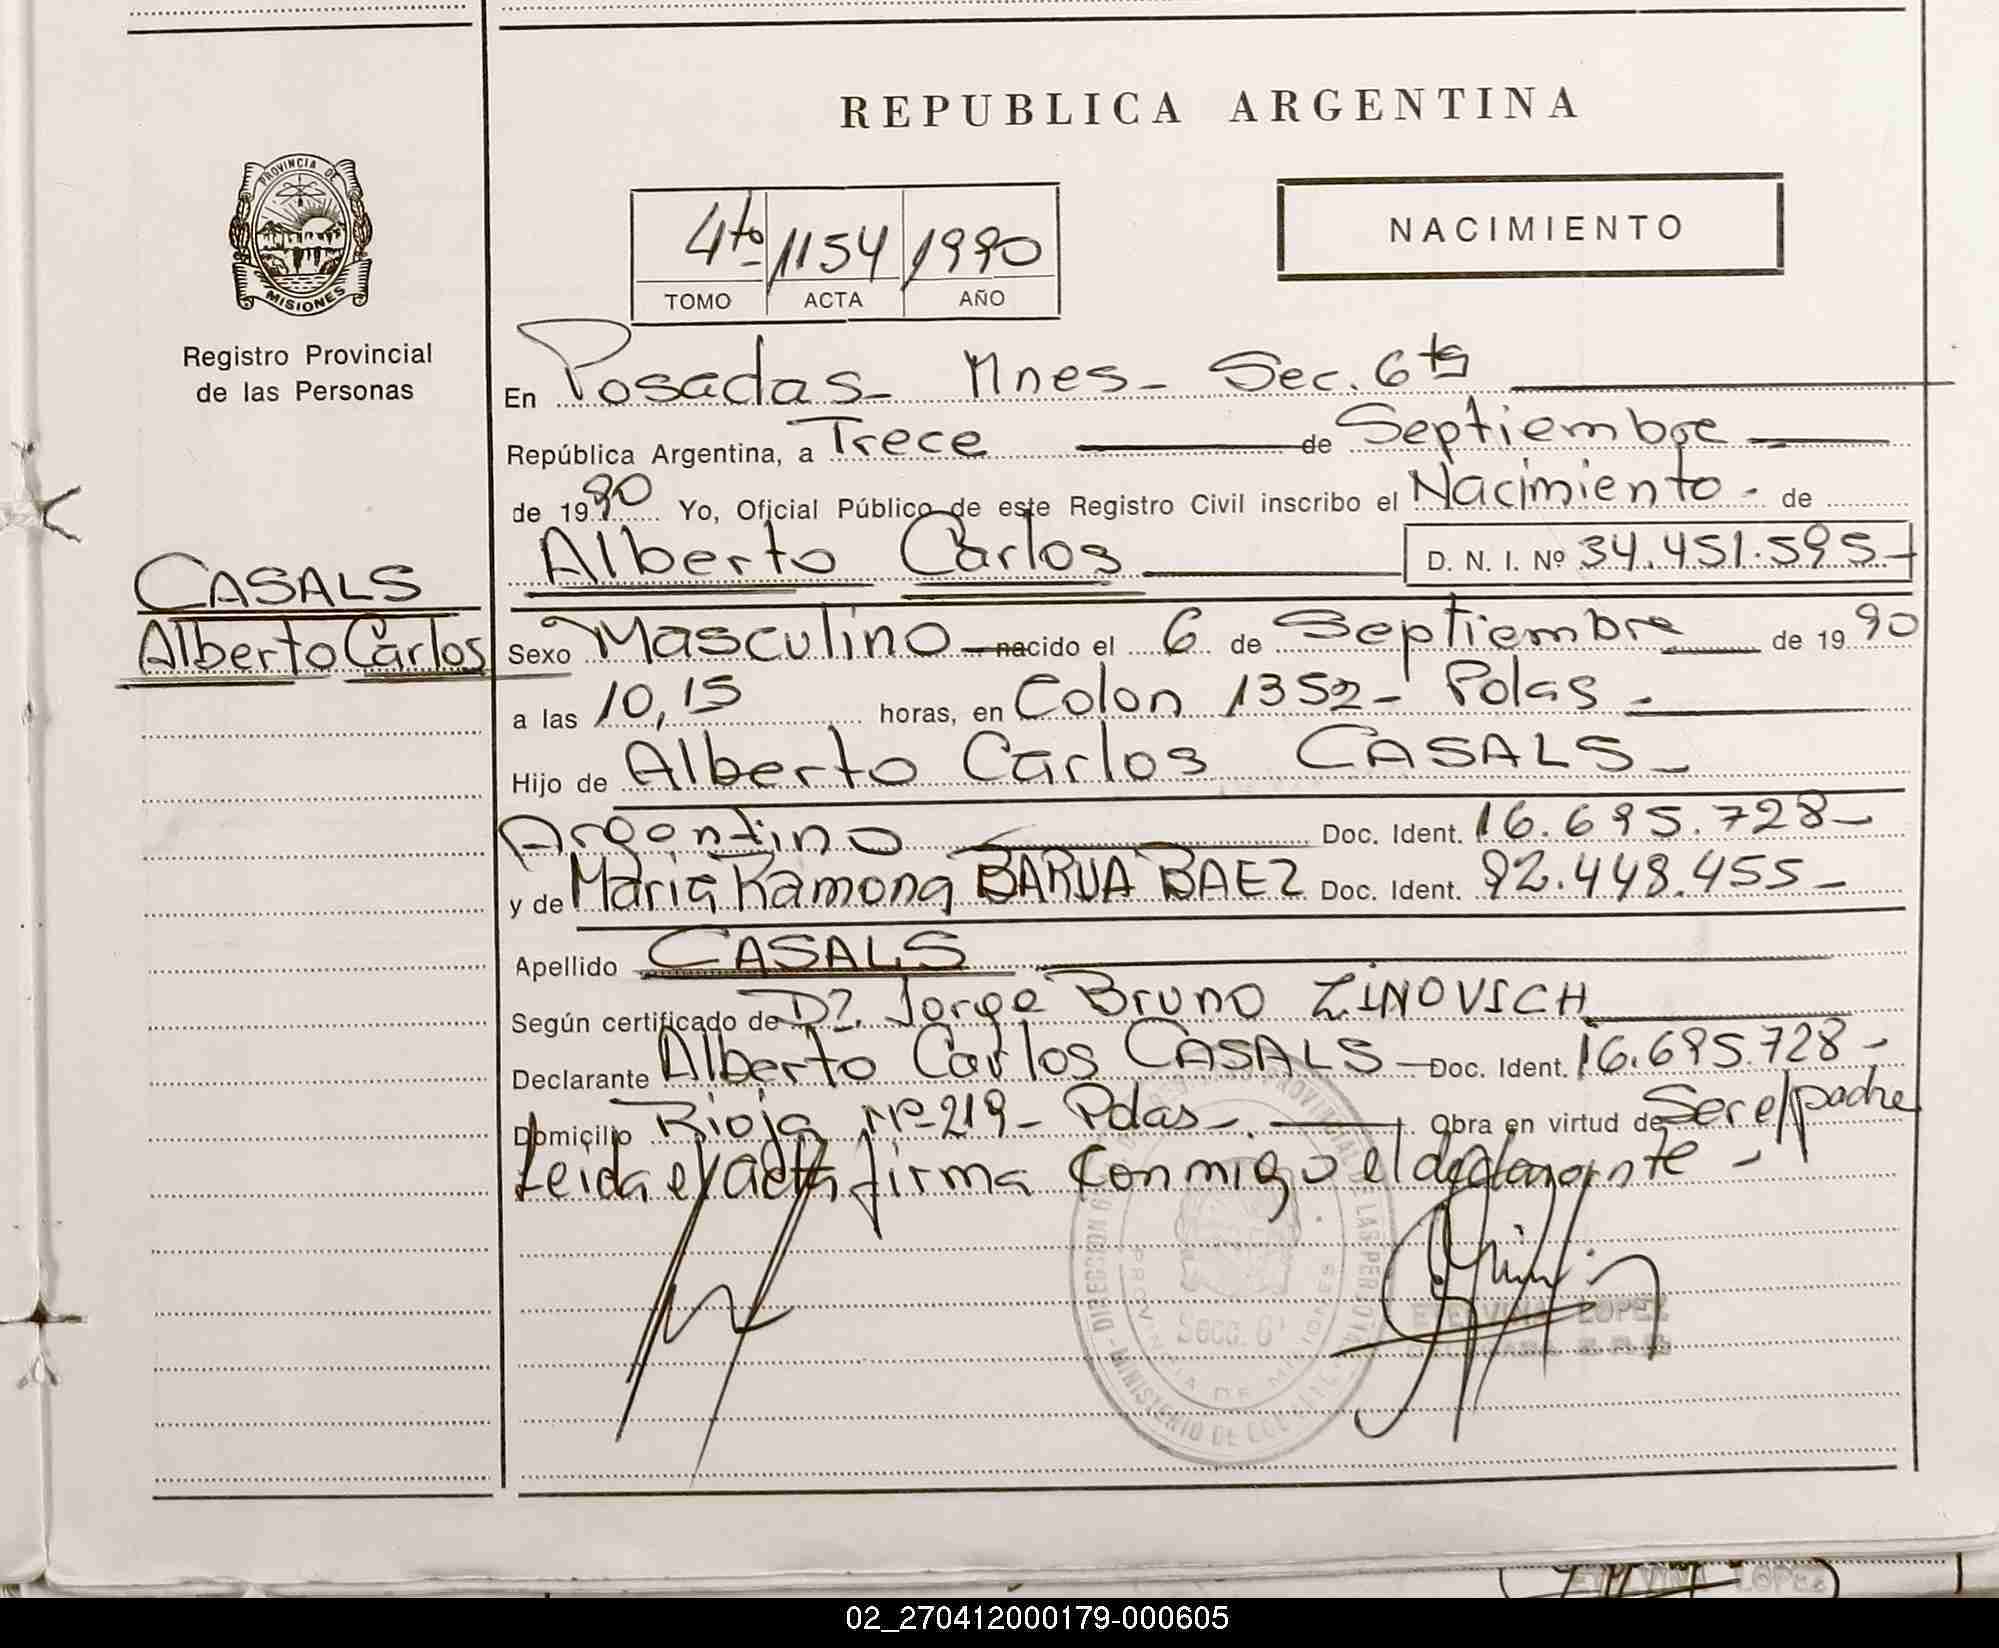 REPUBLICA ARGENTINA
PROVINCIA DE
MISIONES
Registro Provincial
de las Personas
4to 1154 1990
TOMO ACTA AÑO
NACIMIENTO
En Posadas - Mnes - Sec. 6ta
República Argentina, a Trece de Septiembre
de 1990 Yo, Oficial Público de este Registro Civil inscribo el Nacimiento - de
Alberto Carlos D. N. I. Nº 34.451.595-
CASALS
Alberto Carlos
Sexo Masculino nacido el 6 de Septiembre de 1990
a las 10,15 horas, en Colon 1352 - Pdas -
Hijo de Alberto Carlos CASALS -
Argentino Doc. Ident. 16.695.728-
y de Maria Ramona BARUA BAEZ Doc. Ident. 92.448.455-
Apellido CASALS
Según certificado de Dr. Jorge Bruno ZINOVICH
Declarante Alberto Carlos CASALS - Doc. Ident. 16.695.728-
Domicilio Rioja Nº 219 - Pdas -. Obra en virtud de Ser el padre
Leida el acta firma conmigo el declarante -
Secc. 6ª
PROVINCIA DE MISIONES
LOPEZ
LOPEZ
02_270412000179-000605